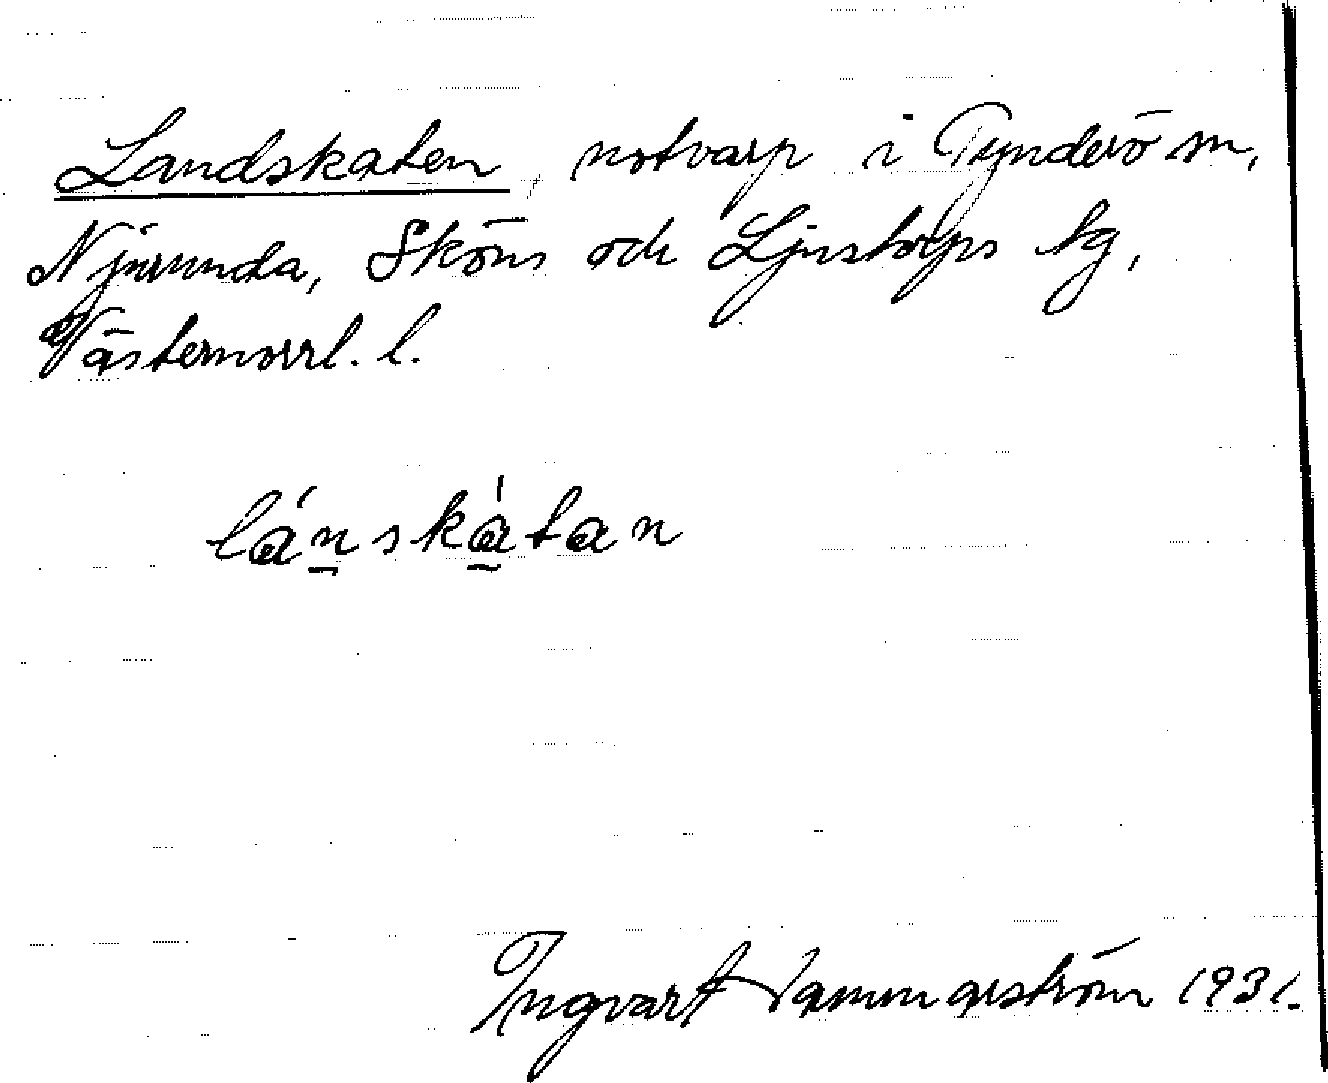 Landskaten, notvarp i Tynderö sn,
Njurunda, Sköns och Ljustorps tg,
Västernorrl. l.
lánskàtan
Ingvart 1931.